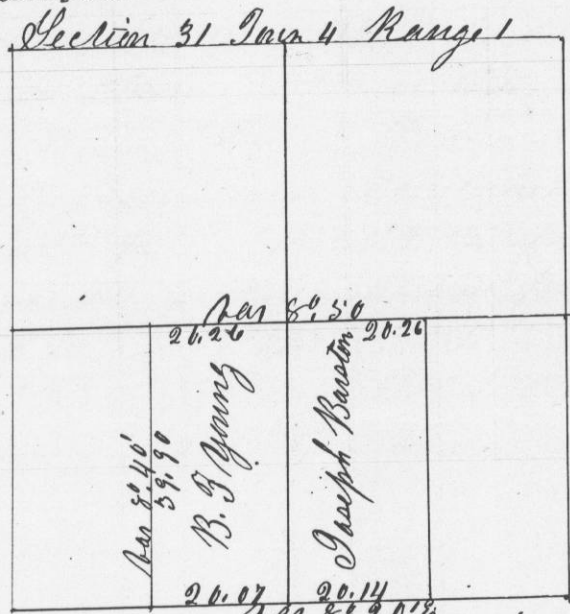 Section 31 Town 4 Range 1
Var 8°.50
20.26 20.26
Var 8°.40'
39.90
B. F Young
Joseph Barston
20.07 20.14